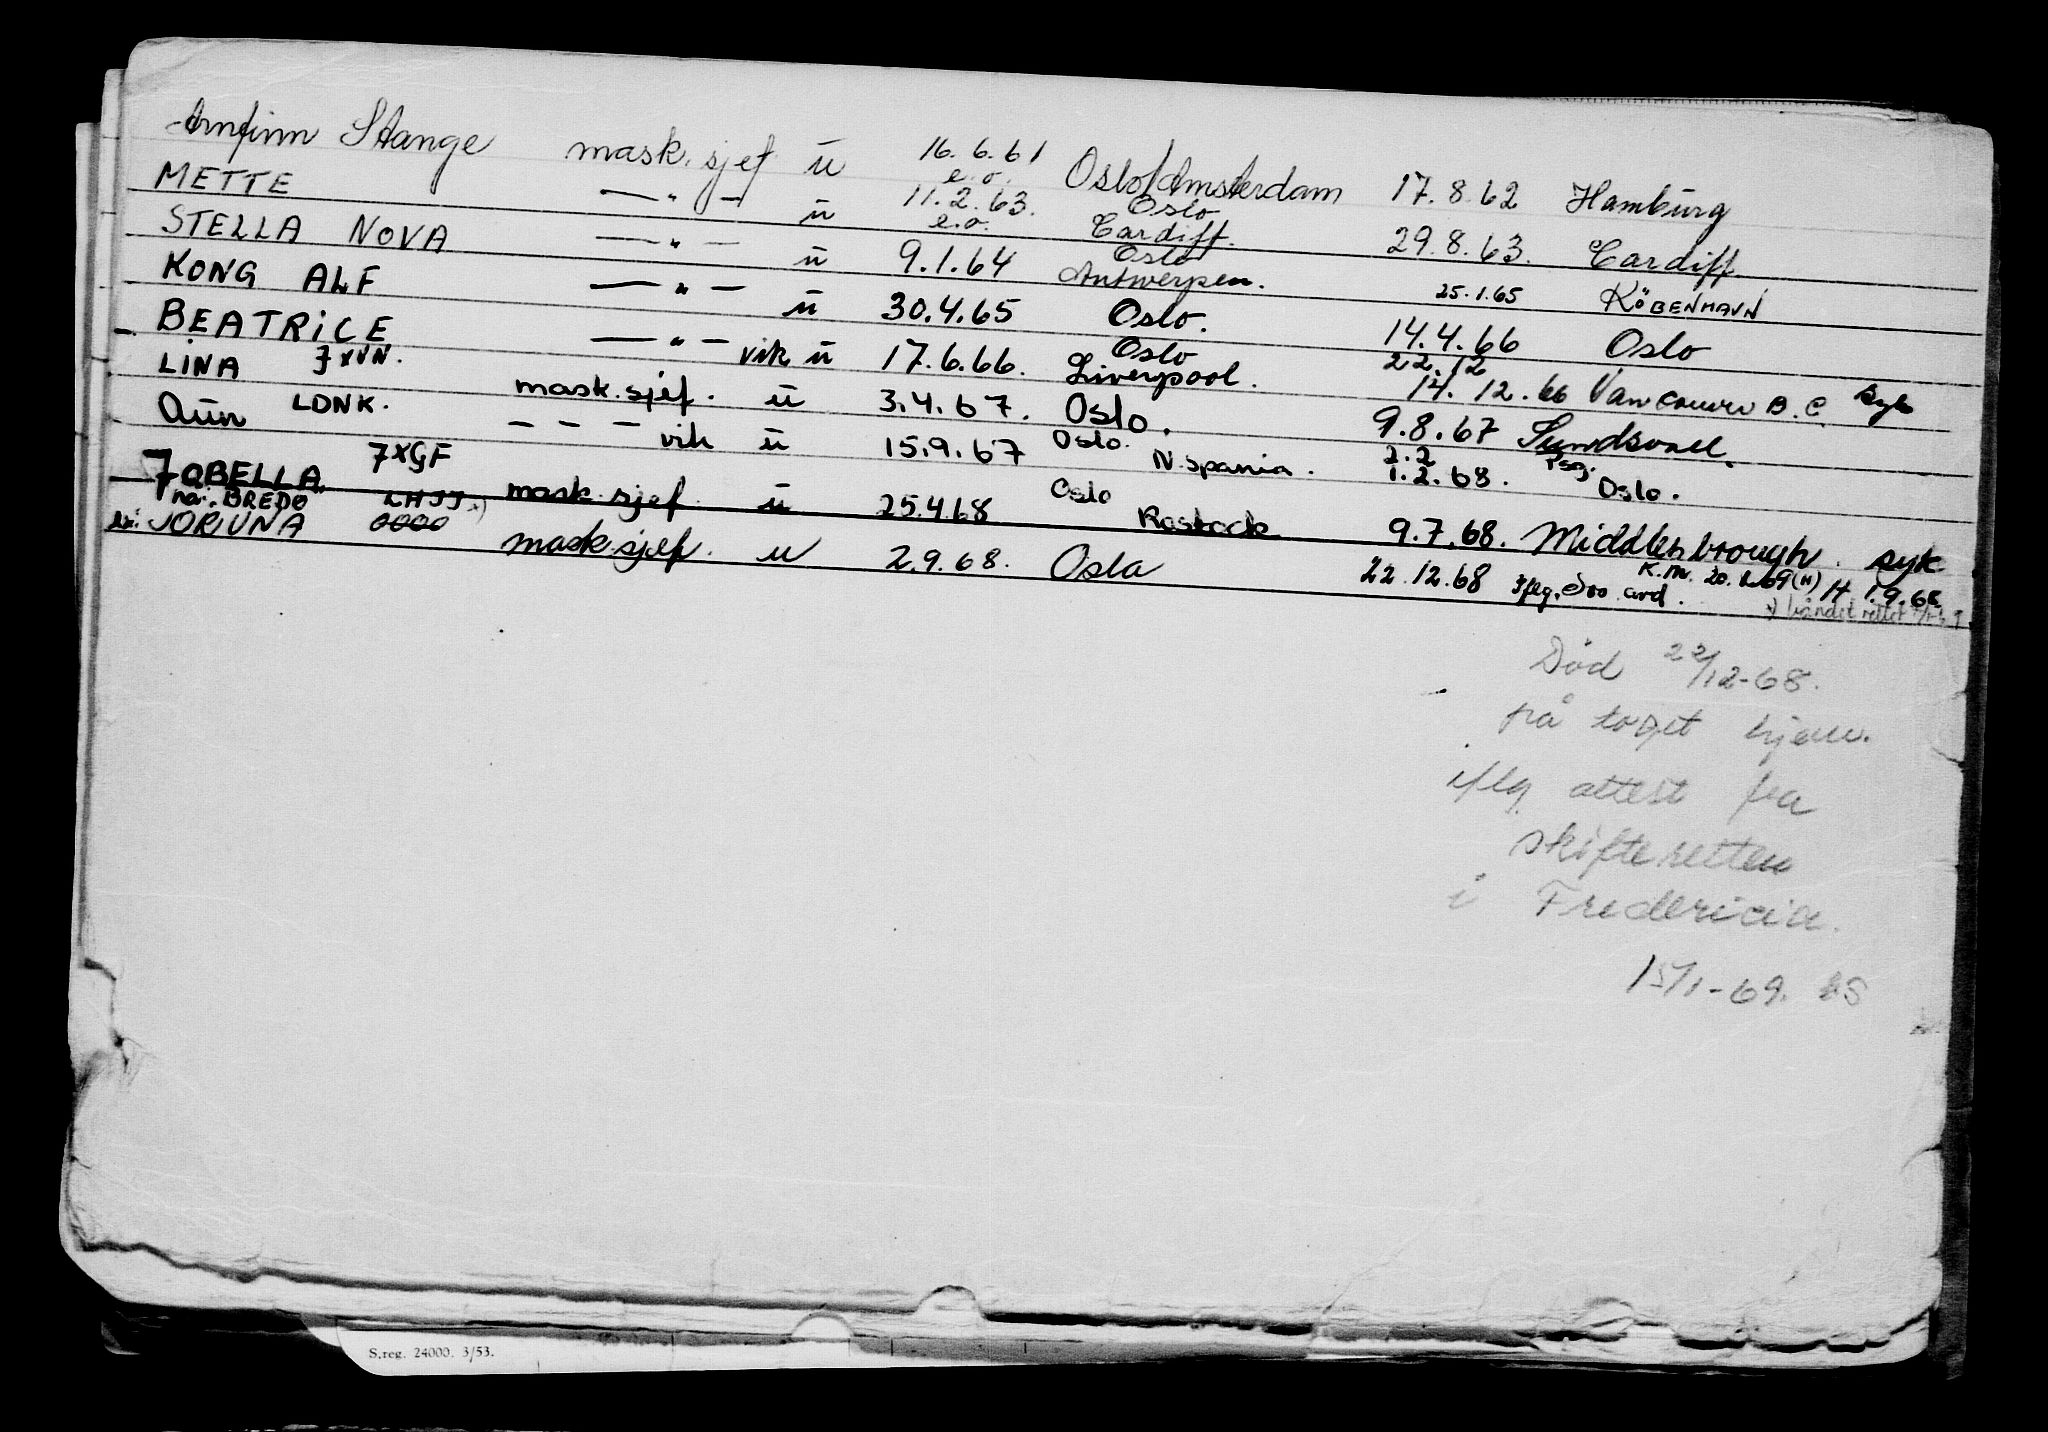 Arnfinn Stange mask. sjef u 16.6.61 e.o. Oslo/Amsterdam 17.8.62 Hamburg
METTE — " — u 11.2.63. e.o. Oslo Cardiff. 29.8.63. Cardiff.
STELLA NOVA — " — u 9.1.64 Oslo Antwerpen. 25.1.65 KÖBENHAVN
KONG ALF — " — u 30.4.65 Oslo. 14.4.66 Oslo
BEATRICE — " — vik u 17.6.66. Oslo Liverpool. 22.12 14.12.66 Vancouver B.C. syk
LINA 7XVN. mask. sjef. u 3.4.67. Oslo. 9.8.67 Sundsvall.
Aun LDNK. — — — vik u 15.9.67 Oslo. N. Spania. 2.2 1.2.68. Psg. Oslo.
JOBELLA 7XGF mask. sjef. u 25.4.68 Oslo Rostock 9.7.68. Middlesbrough. syk
nå: BREDO LHJJ x)
ex: JORUNA mask. sjef. u 2.9.68. Oslo 22.12.68 Iflg. Oro. avd. K.m. 20.1.69 (H) H 1.9.68
x) båndet rettet
Död 22/12-68.
på toget hjem.
iflg attest fra
skifteretten
i Fredericia.
15/1-69.
S.reg. 24000. 3/53.